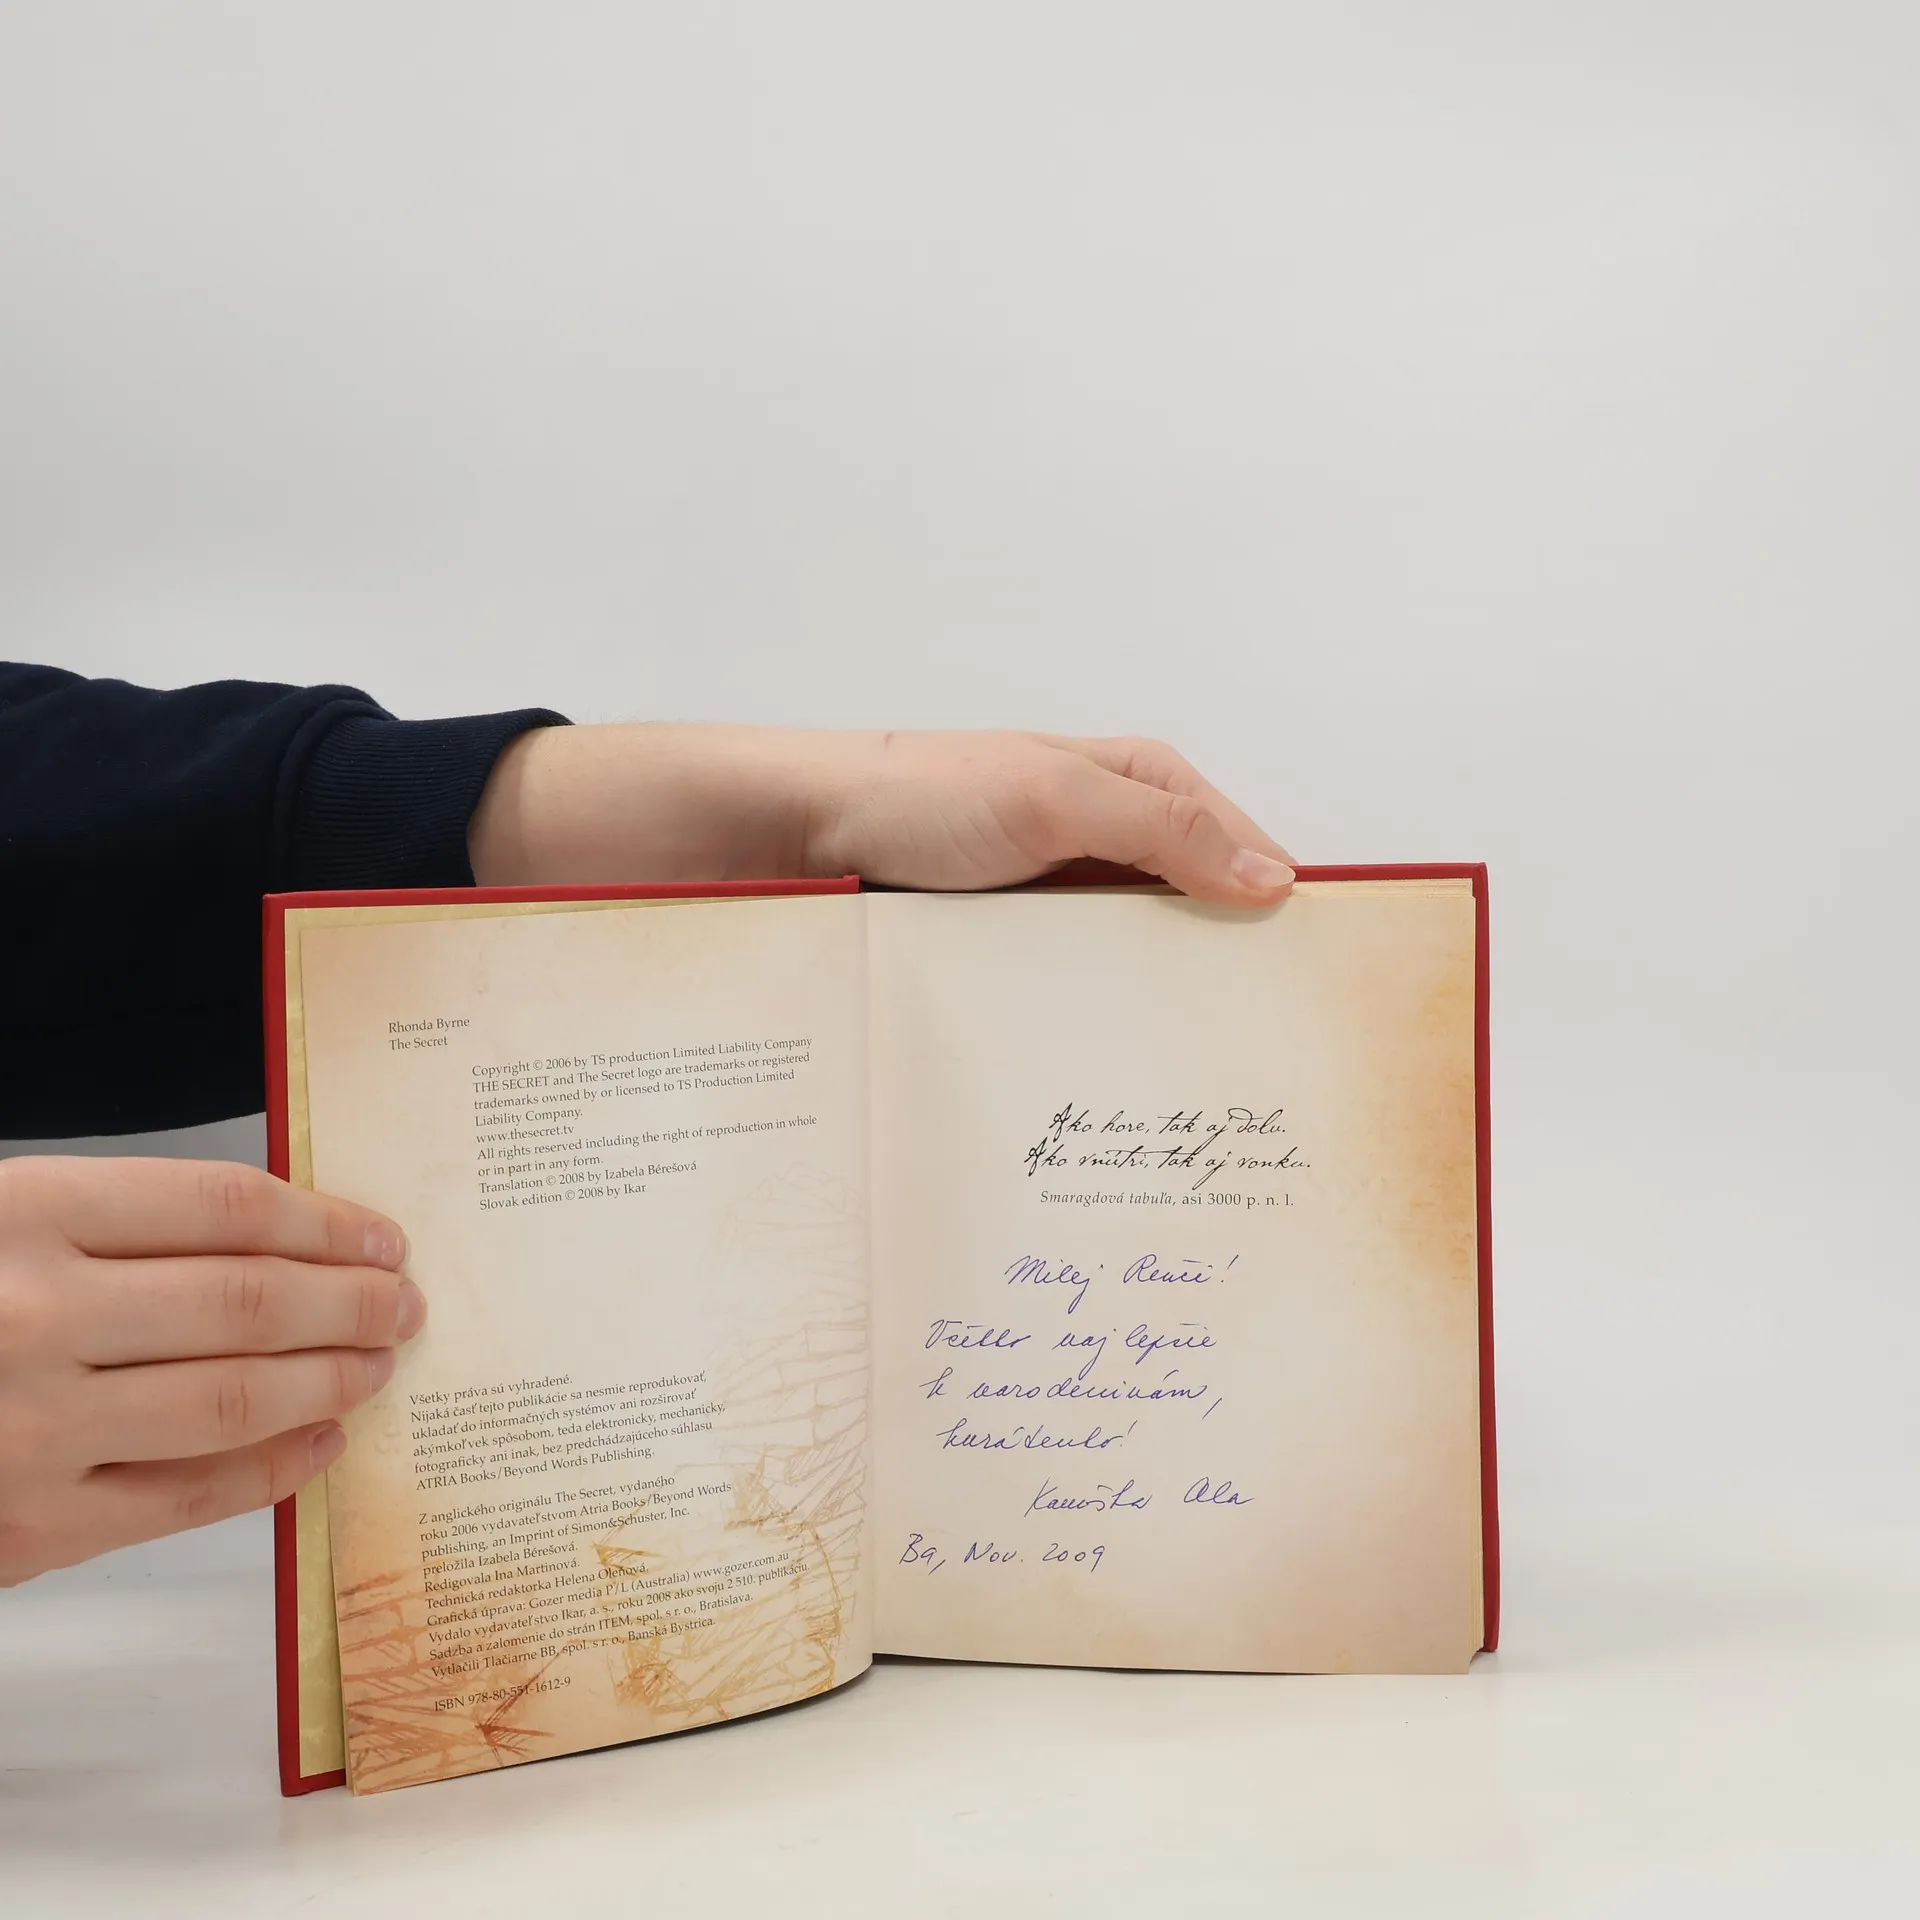 Rhonda Byrne
The Secret
Copyright © 2006 by TS production Limited Liability Company
THE SECRET and The Secret logo are trademarks or registered
trademarks owned by or licensed to TS Production Limited
Liability Company.
www.thesecret.tv
All rights reserved including the right of reproduction in whole
or in part in any form.
Translation © 2008 by Izabela Bérešová
Slovak edition © 2008 by Ikar
Všetky práva sú vyhradené.
Nijaká časť tejto publikácie sa nesmie reprodukovať,
ukladať do informačných systémov ani rozširovať
akýmkoľvek spôsobom, teda elektronicky, mechanicky,
fotograficky ani inak, bez predchádzajúceho súhlasu
ATRIA Books/Beyond Words Publishing.
Z anglického originálu The Secret, vydaného
roku 2006 vydavateľstvom Atria Books/Beyond Words
publishing, an Imprint of Simon&Schuster, Inc.
preložila Izabela Bérešová.
Redigovala Ina Martinová.
Technická redaktorka Helena Oleňová.
Grafická úprava: Gozer media P/L (Australia) www.gozer.com.au
Vydalo vydavateľstvo Ikar, a. s., roku 2008 ako svoju 2 510. publikáciu.
Sadzba a zalomenie do strán ITEM, spol. s r. o., Bratislava.
Vytlačili Tlačiarne BB, spol. s r. o., Banská Bystrica.
ISBN 978-80-551-1612-9
Ako hore, tak aj dolu.
Ako vnútri, tak aj vonku.
Smaragdová tabuľa, asi 3000 p. n. l.
Milej Renči!
Všetko naj lepšie
k narodeninám,
kurátenko!
Kamoška Ala
Ba, Nov. 2009